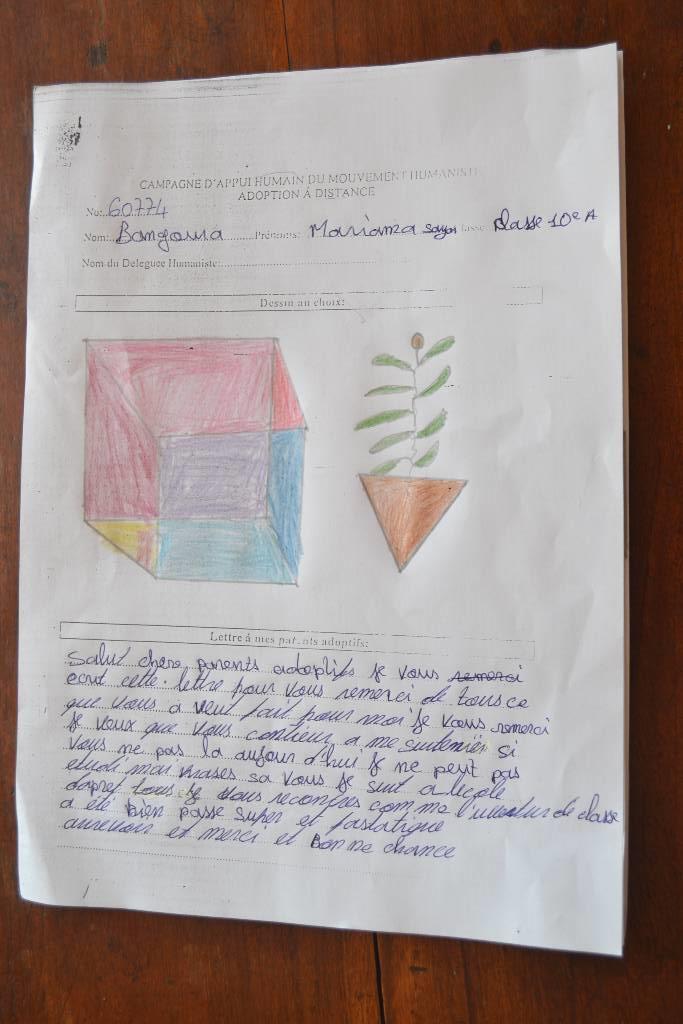 CAMPAGNE D'APPUI HUMAIN DU MOUVEMENT HUMANISTE
ADOPTION Á DISTANCE
No: 60774
Nom: Bangoura Prénoms: Mariama classe 10e A
Nom du Deleguee Humaniste:
Dessin au choix:
Lettre á mes parents adoptifs:
Salut chere parents adoptifs je vous remerci
ecrit cette lettre pour vous remerci de tous ce
que vous a veut fait pour moi je vous remerci
je veux que vous contineur a me suitenier si
vous ne pas la aujour d'hui je ne peut pas
etudi mai sa vous je suit a lecole
dapret tous je vous reconfres comme de classe
a été bien passe super et fastatique
aurevoir et merci et Bonne chance